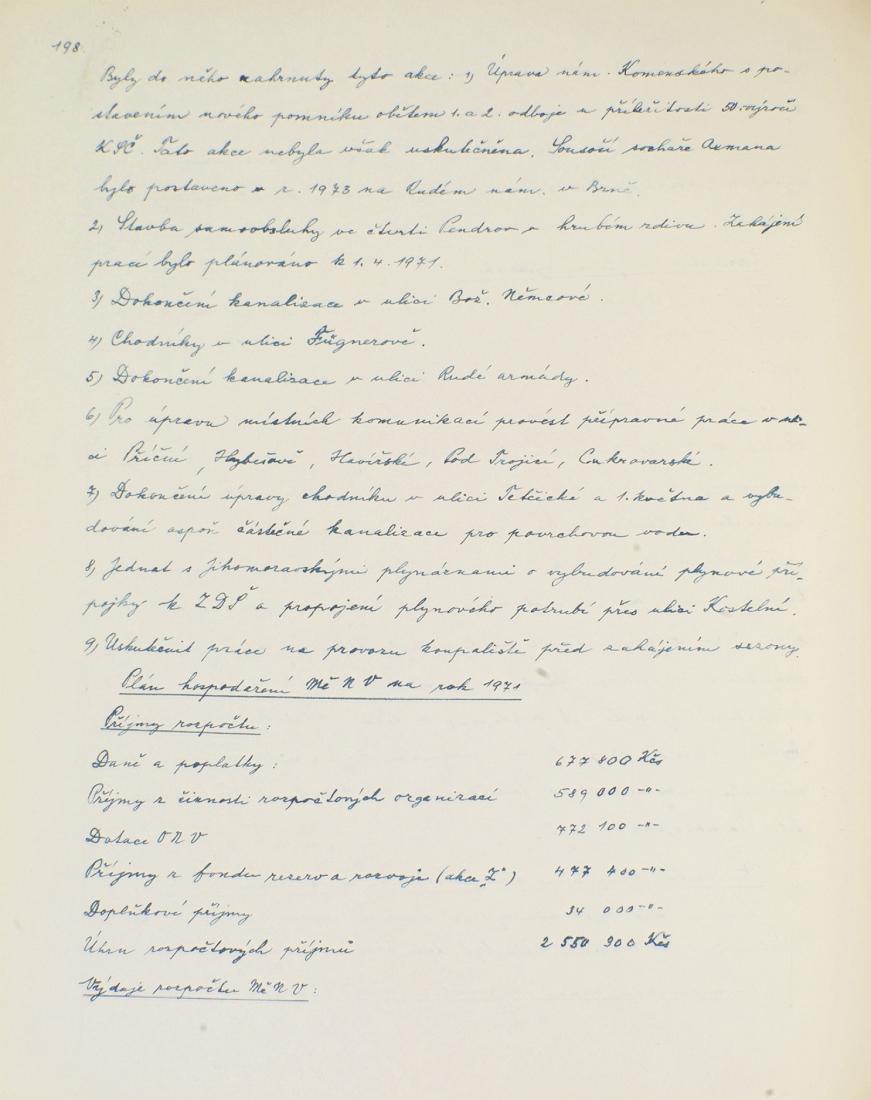 198
Byly do něho zahrnuty tyto akce: 1) Úprava nám. Komenského s po-
stavením nového pomníku obětem 1. a 2. odboje u příležitosti 50. výročí
KSČ. Tato akce nebyla však uskutečněna. Sousoší sochaře Axmana
bylo postaveno v r. 1973 na Rudém nám. v Brně.
2) Stavba samoobsluhy ve čtvrti Pendrov v hrubém zdivu. Zahájení
prací bylo plánováno k 1. 4. 1971.
3) Dokončení kanalizace v ulici Bož. Němcové.
4) Chodníky v ulici Fügnerově.
5) Dokončení kanalizace v ulici Rudé armády.
6) Pro úpravu místních komunikací provést přípravné práce v uli-
ci Příční, Hybešově, Havířské, Pod Trojicí, Cukrovarské.
7) Dokončení úpravy chodníku v ulici Tetčické a 1. května a vybu-
dování aspoň částečné kanalizace pro povrchovou vodu.
8) Jednat s Jihomoravskými plynárnami o vybudování plynové pří-
pojky k ZDŠ a propojení plynového potrubí přes ulici Kostelní.
9) Uskutečnit práce na provozu koupaliště před zahájením sezony.
Plán hospodaření MěNV na rok 1971
Příjmy rozpočtu:
Daně a poplatky: 677 800 Kčs
Příjmy z činnosti rozpočtových organizací 589 000 -"-
Dotace ONV 772 100 -"-
Příjmy z fondu rezerv a rozvoje (akce "Z") 477 400 -"-
Doplňkové příjmy 34 000 -"-
Úhrn rozpočtových příjmů 2 550 300 Kčs
Výdaje rozpočtu MěNV: